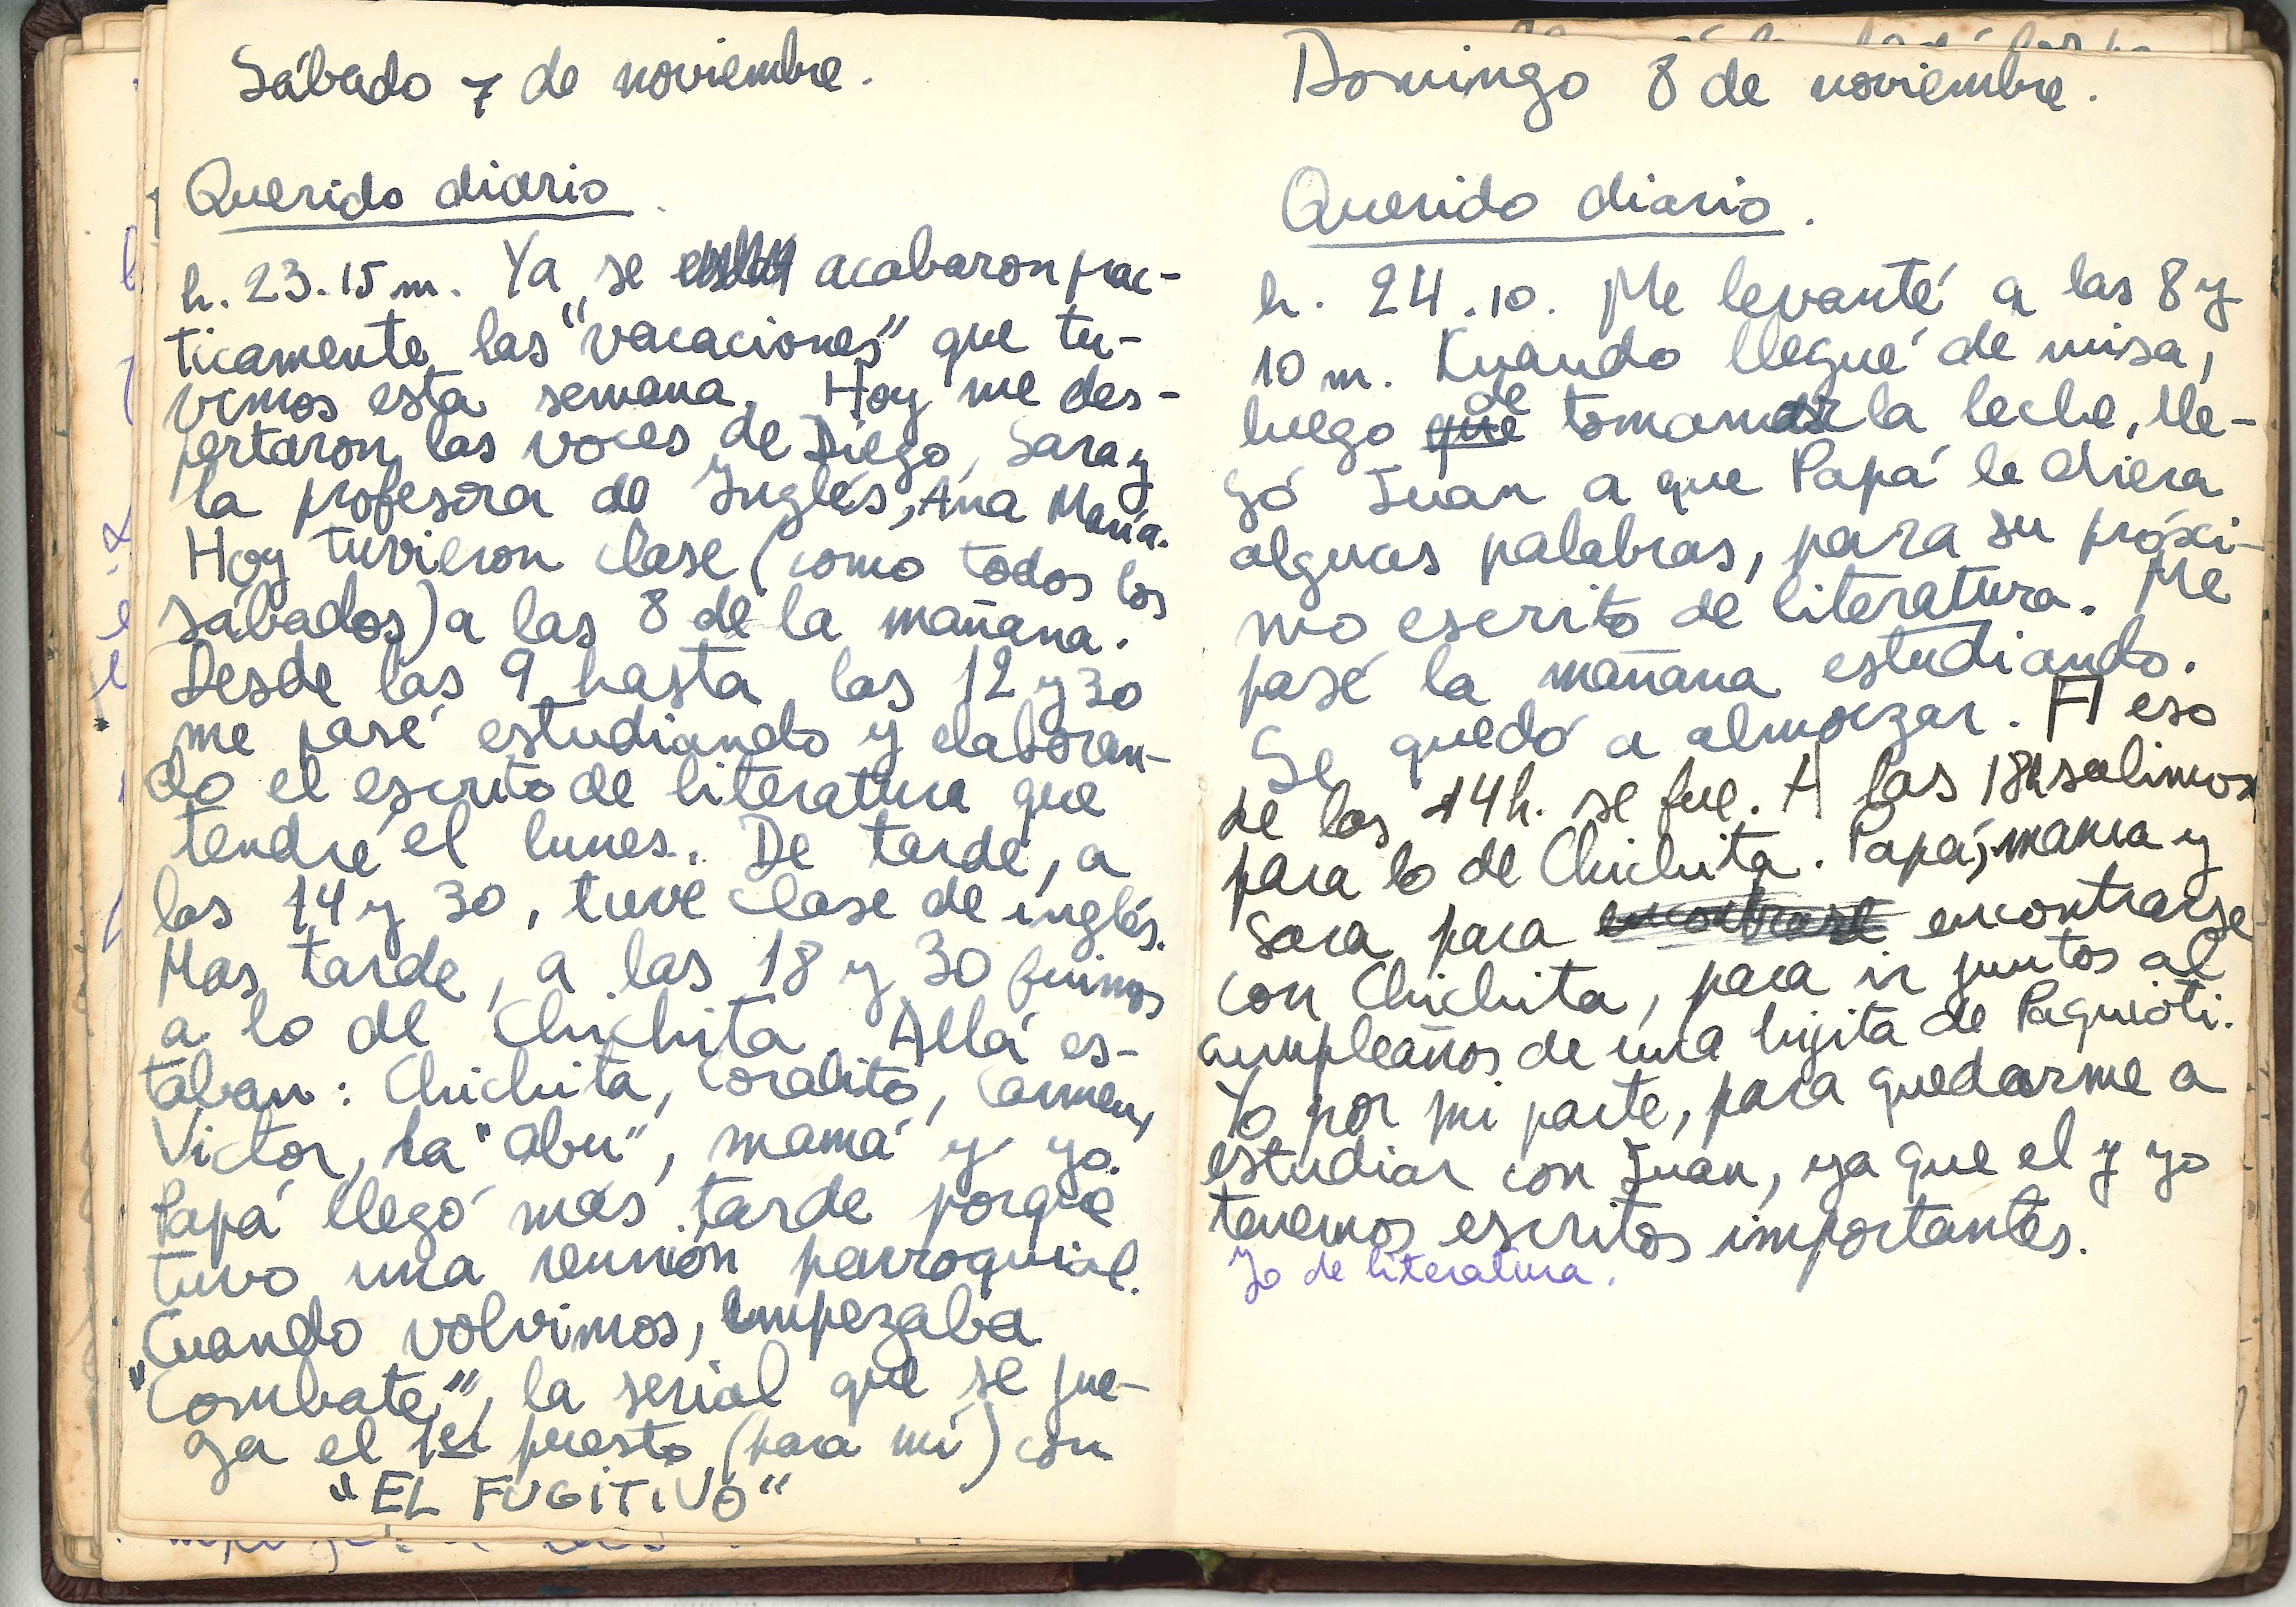 Sábado 7 de noviembre.
Querido diario.
h. 23.15 m. Ya se acabaron prac-
ticamente las "vacaciones" que tu-
vimos esta semana. Hoy me des-
pertaron las voces de Diego, Sara y
la profesora de Inglés, Ana María.
Hoy tuvieron clase (como todos los
sábados) a las 8 de la mañana.
Desde las 9 hasta las 12 y 30
me pasé estudiando y elaboran-
do el escrito de literatura que
tendré el lunes. De tarde, a
las 14 y 30, tuve clase de inglés.
Mas tarde, a las 18 y 30 fuimos
a lo de Chichita. Allá es-
taban: Chichita, Coralito, Carmen,
Victor, la "abu", mamá y yo.
Papá llegó más tarde porque
tuvo una reunión parroquial.
Cuando volvimos, empezaba
"Combate", la serial que se jue-
ga el 1er puesto (para mí) con
"EL FUGITIVO"
Domingo 8 de noviembre.
Querido diario.
h. 24.10. Me levanté a las 8 y
10 m. Kuando llegué de misa,
luego que de tomar la leche, lle-
gó Juan a que Papá le diera
algunas palabras, para su próxi-
mo escrito de literatura. Me
pasé la mañana estudiando.
Se quedó a almorzar. A eso
de las 14h. se fue. A las 18h salimos
para lo de Chichita. Papá, mama y
Sara para encontrarse encontrarse
con Chichita, para ir juntos al
cumpleaños de una hijita de Paguioti.
Yo por mi parte, para quedarme a
estudiar con Juan, ya que el y yo
tenemos escritos importantes.
Yo de literatura.